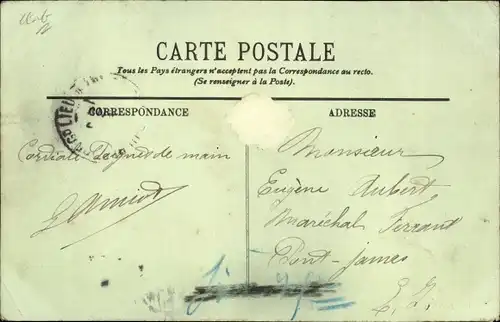 CARTE POSTALE
Tous les Pays étrangers n'acceptent pas la Correspondance au recto.
(Se renseigner à la Poste).
CORRESPONDANCE
ADRESSE
Cordiale Poignée de main
Monsieur
Eugène Aubert
Maréchal Ferrant
Pont-James